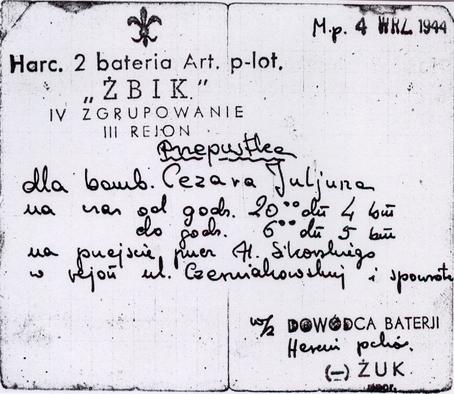 M.p. 4 WRZ. 1944
Harc. 2 bateria Art. p-lot.
„ŻBIK."
IV ZGRUPOWANIE
III REJON
Przepustka
dla bomb. Cezara Juljusza
na czas od godz. 20⁰⁰ dn 4 bm
do godz. 6⁰⁰ dn 5 bm
na przejście przez Al. Sikorskiego
w rejon ul. Czerniakowskiej i spowrotem
w/z DOWÓDCA BATERJI
pchor.
(—) ŻUK